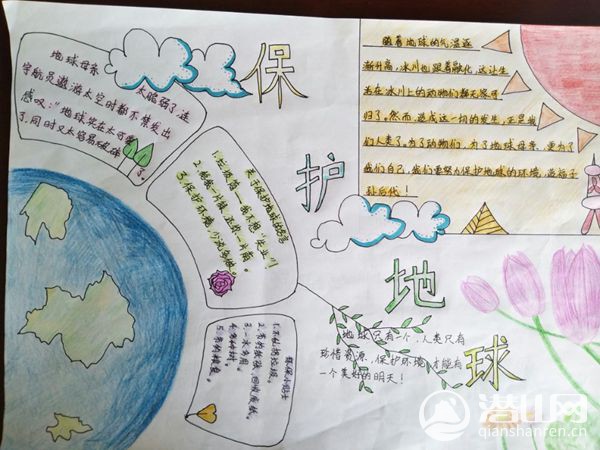 保护地球
地球母亲
太脆弱了，连
宇航员遨游太空时都不禁发出
感叹：“地球实在太可爱
了，同时又太容易破碎
了。
关于保护地球的名言
2、积极一片绿，还您一片荫。
3、保护环境，少说多做。
环保小贴士
1、不乱扔垃圾。
2、节约纸张，回收废纸。
3、一水多用。
4、多种树。
随着地球的气温逐
渐升高，冰川也跟着融化，这让生
活在冰川上的动物们都无家可
归了。然而，造成这一切的发生，正是我
们人类了。为了动物们，为了地球母亲，更为了
我们自己，我们要努力保护地球的环境，造福子
孙后代！
地球只有一个，人类只有
珍惜资源，保护环境，才能有
一个美好的明天！
潜山网
qianshanren.cn